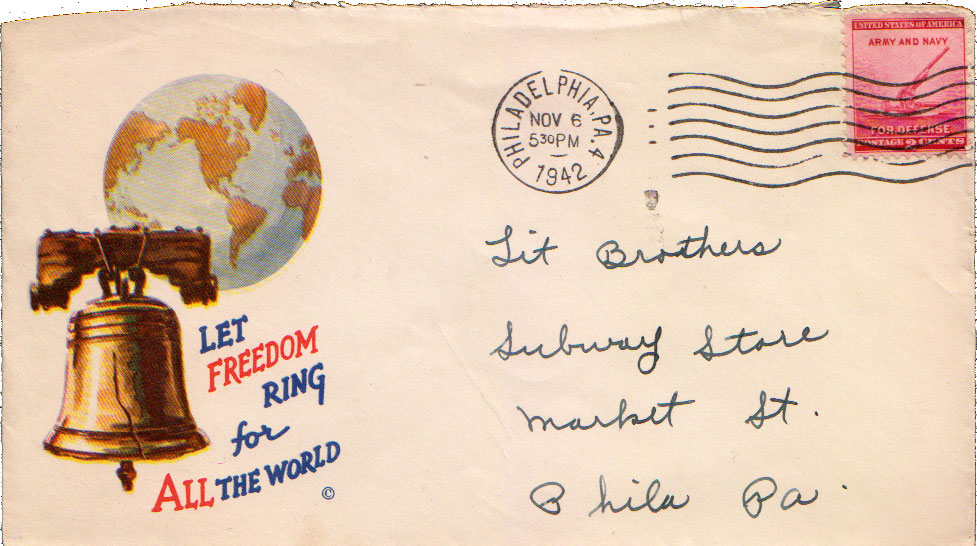 UNITED STATES OF AMERICA
ARMY AND NAVY
FOR DEFENSE
POSTAGE 2 CENTS
PHILADELPHIA, PA. 4
NOV 6
530PM
1942
Lit Brothers
Subway Store
Market St.
Phila Pa.
LET
FREEDOM
RING
for
ALL THE WORLD
©